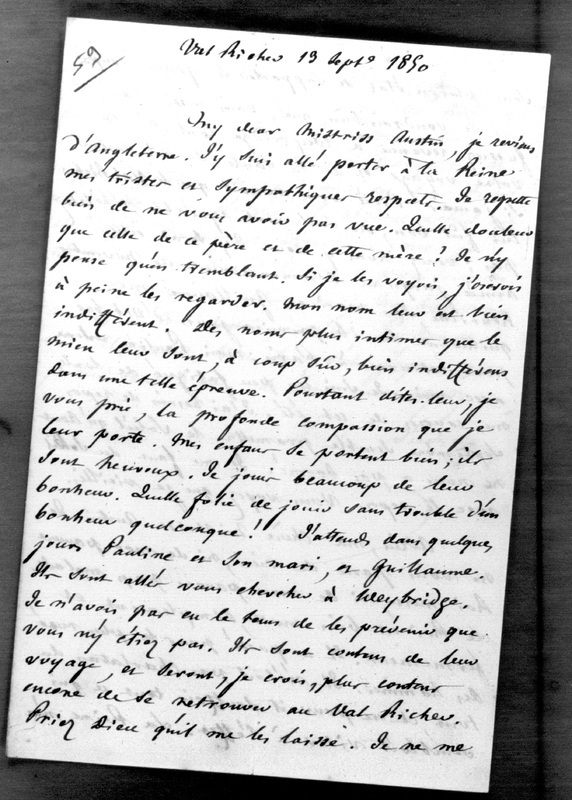 59
Val Richer 13 Septe 1850
My dear Mistriss Austin, je reviens
d'Angleterre. J'y suis allé porter à la Reine
mes tristes et sympathiques respects. Je regrette
bien de ne vous avoir pas vue. Quelle douleur
que celle de ce père et de cette mère ! Je n'y
pense qu'en tremblant. Si je les voyois, j'oserois
à peine les regarder. Mon nom leur est bien
indifférent. Des noms plus intimes que le
mien leur sont, à coup sûr, bien indifférens
dans une telle épreuve. Pourtant dites-leur, je
vous prie, la profonde compassion que je
leur porte. Mes enfans se portent bien ; ils
sont heureux. Je jouis beaucoup de leur
bonheur. Quelle folie de jouir sans trouble d'un
bonheur quelconque ! J'attends dans quelques
jours Pauline et son mari, et Guillaume.
Ils sont allés vous chercher à Weybridge.
Je n'avois pas eu le tems de les prévenir que
vous n'y étiez pas. Ils sont contens de leur
voyage, et seront, je crois, plus contens
encore de se retrouver au Val Richer.
Priez Dieu qu'il me les laisse. Je ne me